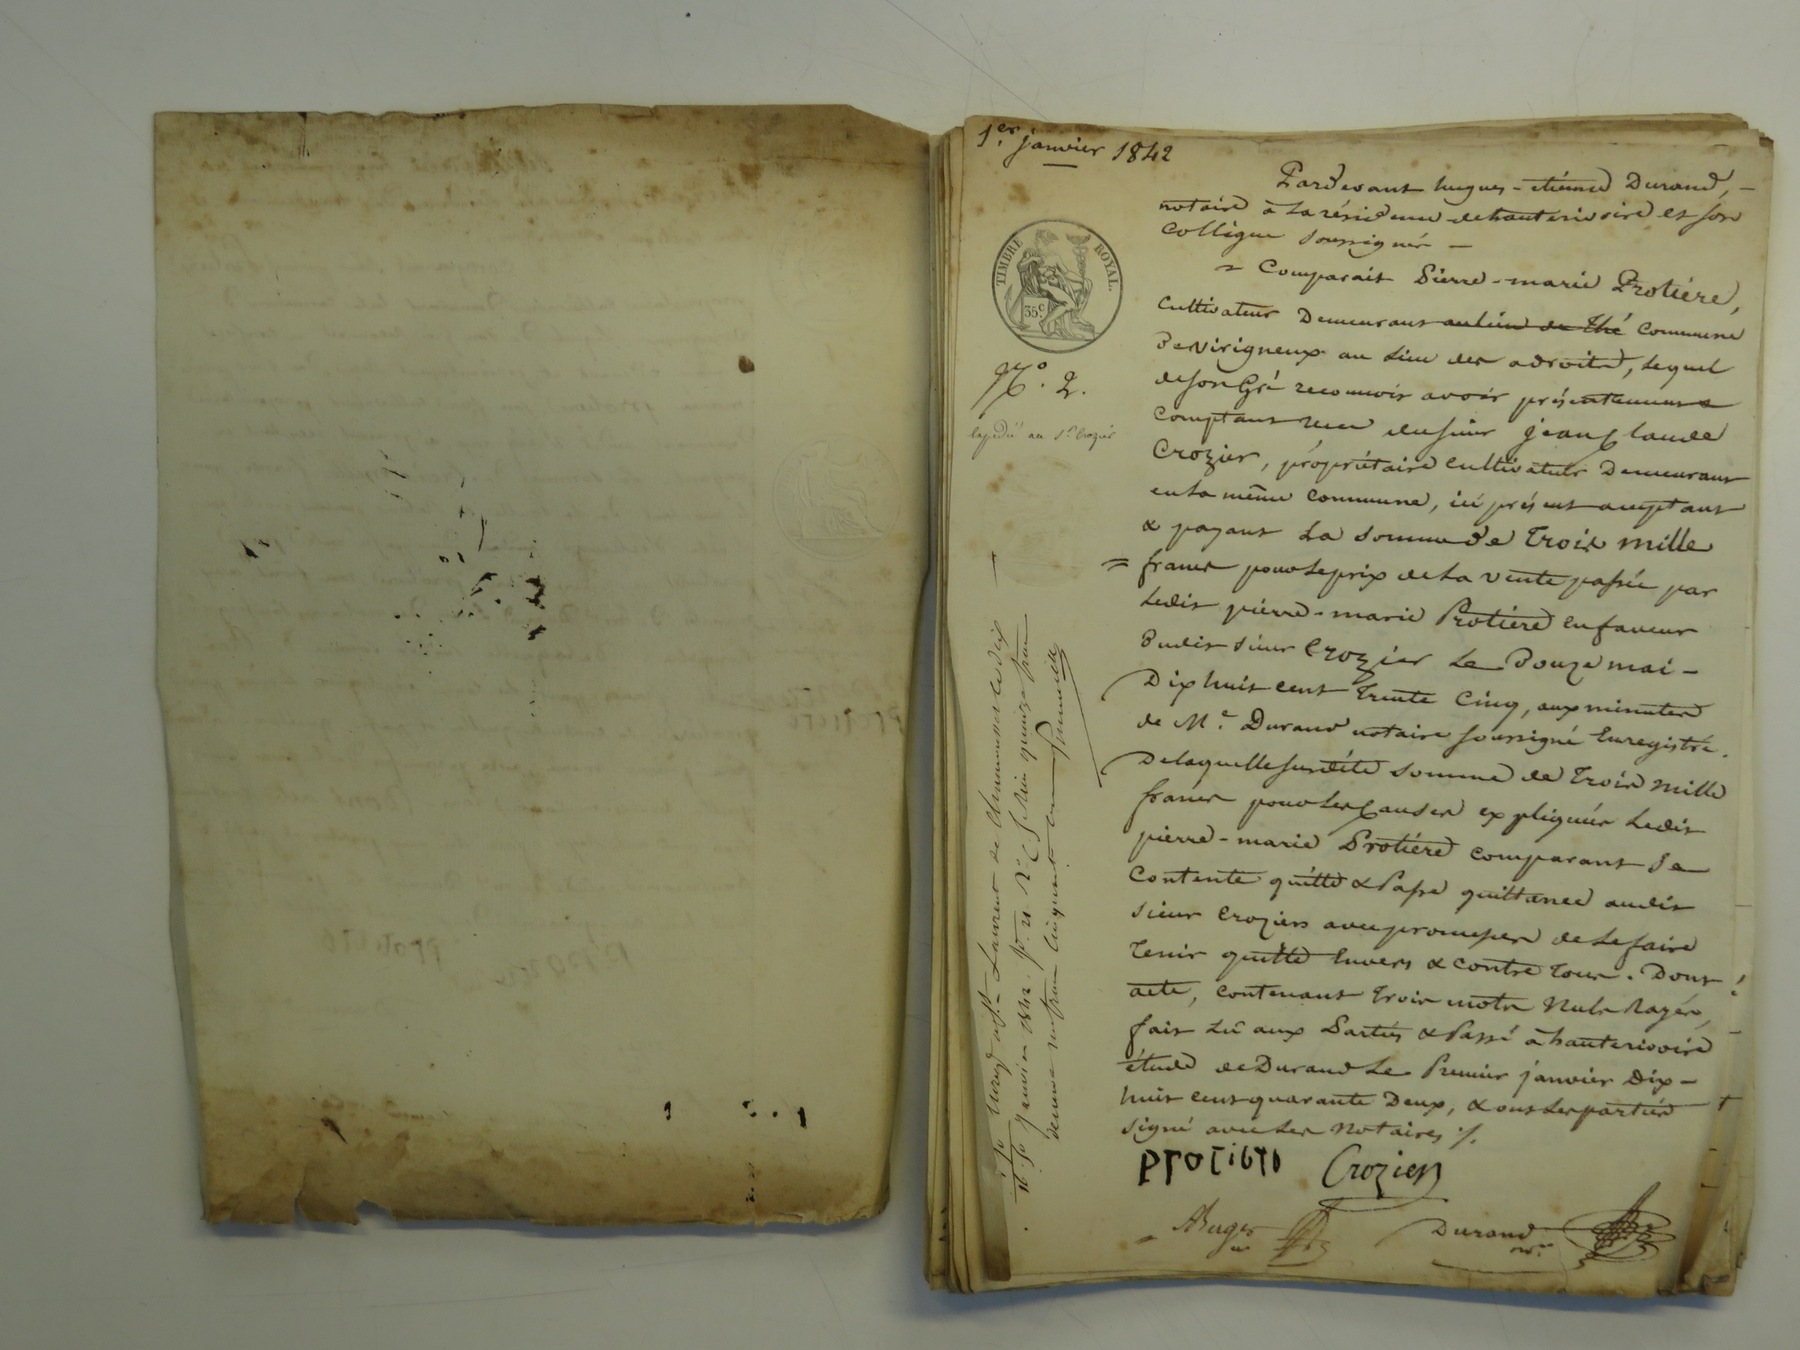 1er janvier 1842
Pardevant hugues-etienne Durand, -
notaire à la résidence de hauterivoire et son
Collègue soussignés -
TIMBRE ROYAL.
35c
= Comparait Pierre-marie Protière,
Cultivateur Demeurant au lieu de Thé commune
De virigneux au Lieu des adroits, Lequel
de son Gré reconnoit avoir présentement
N° 2.
Comptant reçu du sieur jean Claude
expédié au Sr Crozier
Crozier, propriétaire Cultivateur Demeurant
en La même Commune, ici présent acceptant
& payant La Somme De Trois mille
= francs pour Le prix de La Vente passée par
Ledit pierre-marie Protière En faveur
Dudit sieur Crozier Le Douze mai -
Dix huit cent Trente Cinq, aux minutes
de Me. Durand notaire soussigné Enregistré.
De laquelle susdite Somme de Trois mille
francs pour Les Causes expliquées Ledit
pierre-marie Protière comparant Se
Contente quitte & Passe quittance audit
Sieur Crozier avec promesse de Le faire
Tenir quitte Envers & Contre Tous. Dont
acte, Contenant Trois mots Nuls Rayés,
fait Lû aux Parties & Passé à hauterivoire
étude de Durand Le Premier janvier Dix-
huit cent quarante Deux, & ont Les parties
Signé avec Les Notaires ./.
Protière Crozier
Durand
St Laurent de Chamousset le dix
janvier 1842. fo. 21. Ro. Cs Reçu quinze francs